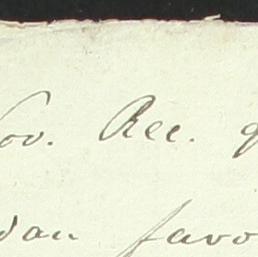 Nov. Rec. g
dan favo